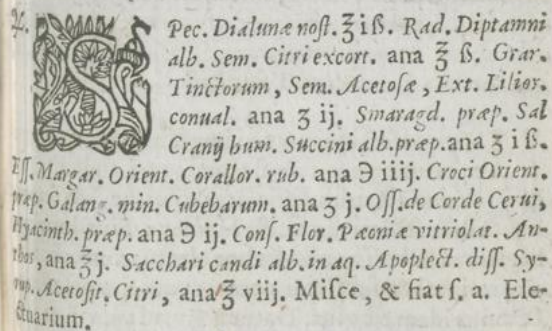 ℞. SPec. Dialunæ nost. ℥ i ß. Rad. Diptamni
alb. Sem. Citri excort. ana ℥ ß. Gran.
Tinctorum, Sem. Acetosæ, Ext. Lilior.
conual. ana ʒ ij. Smaragd. præp. Sal
Cranij hum. Succini alb. præp. ana ʒ i ß.
Ess. Margar. Orient. Corallor. rub. ana ℈ iiij. Croci Orient.
præp. Galang. min. Cubebarum. ana ʒ j. Oss. de Corde Cerui,
Hyacinth. præp. ana ℈ ij. Cons. Flor. Pæoniæ vitriolat. An-
thos, ana ℥ j. Sacchari candi alb. in aq. Apoplect. diss. Sy-
rup. Acetosit. Citri, ana ℥ viij. Misce, & fiat s. a. Ele-
ctuarium.